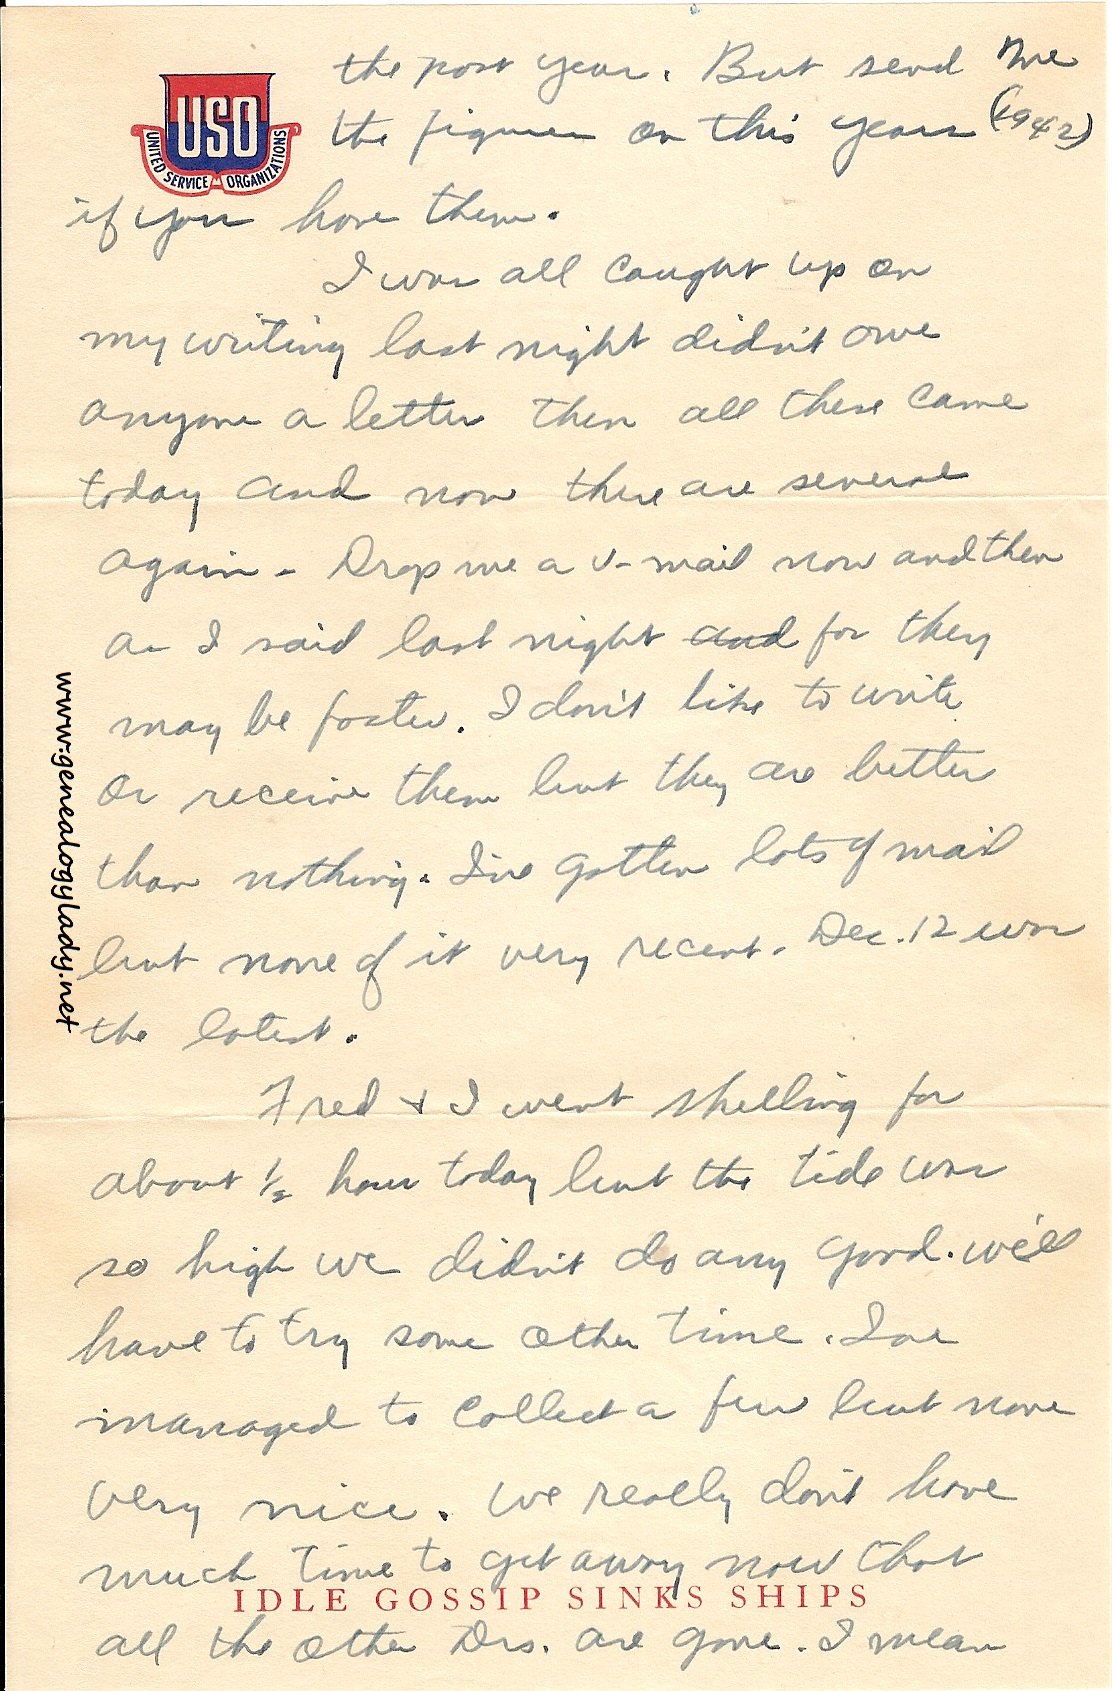 USO
UNITED SERVICE ORGANIZATIONS
the past year. But send me
the figures on this years (1942)
if you have them.
I was all caught up on
my writing last night didn't owe
anyone a letter then all these came
today and now there are several
again - Drop me a V-mail now and then
as I said last night and for they
may be faster. I don't like to write
or receive them but they are better
than nothing. I've gotten lots of mail
but none of it very recent. Dec. 12 was
the latest.
Fred + I went shelling for
about 1/2 hour today but the tide was
so high we didn't do any good. We'll
have to try some other time. I've
managed to collect a few but none
very nice. We really don't have
much time to get away now that
IDLE GOSSIP SINKS SHIPS
all the other Drs. are gone. I mean
www.genealogylady.net